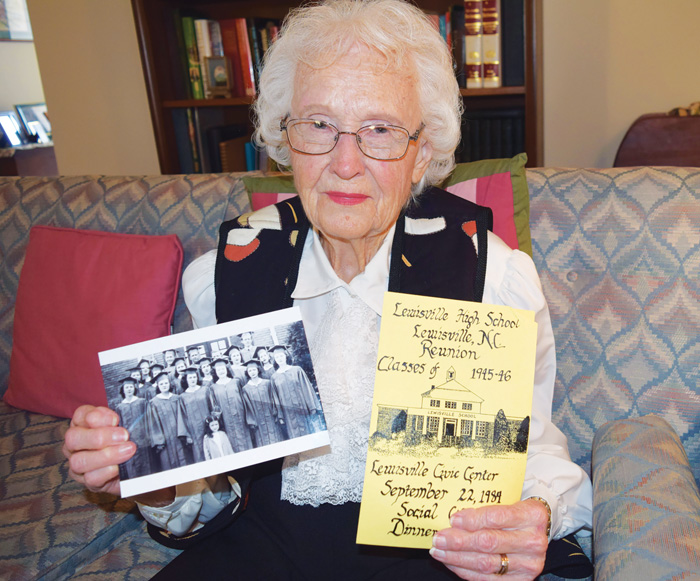 Lewisville High School
Lewisville, NC
Reunion
Classes of 1945-46
LEWISVILLE SCHOOL
Lewisville Civic Center
September 22, 1984
Social
Dinner